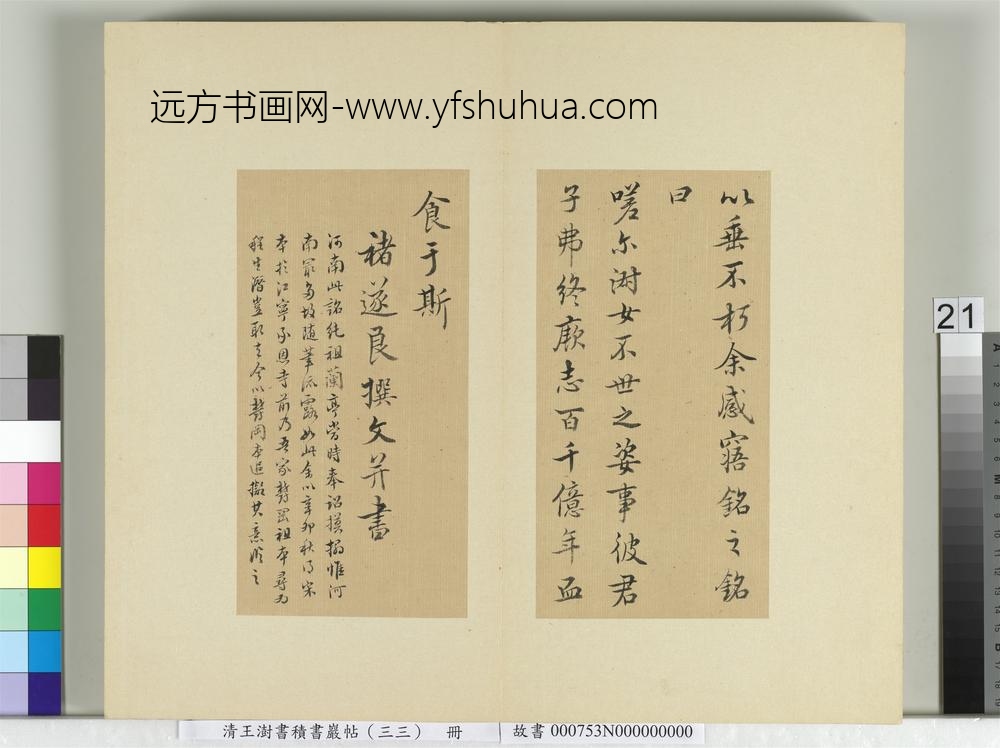 远方书画网-www.yfshuhua.com
以垂不朽余感寤銘之銘
曰
嗟尔淑女不世之姿事彼君
子弗終厥志百千億年血
食于斯
褚遂良撰文并書
河南此銘純祖蘭亭當時奉詔摸搨惟河
南最多故隨筆流露如此余以辛卯秋得宋
本於江寧承恩寺前乃吾家鬱岡祖本尋為
程生潛豈取去今以鬱岡本追擬其意臨之
21
清王澍書積書巖帖（三三） 冊
故書 000753N000000000